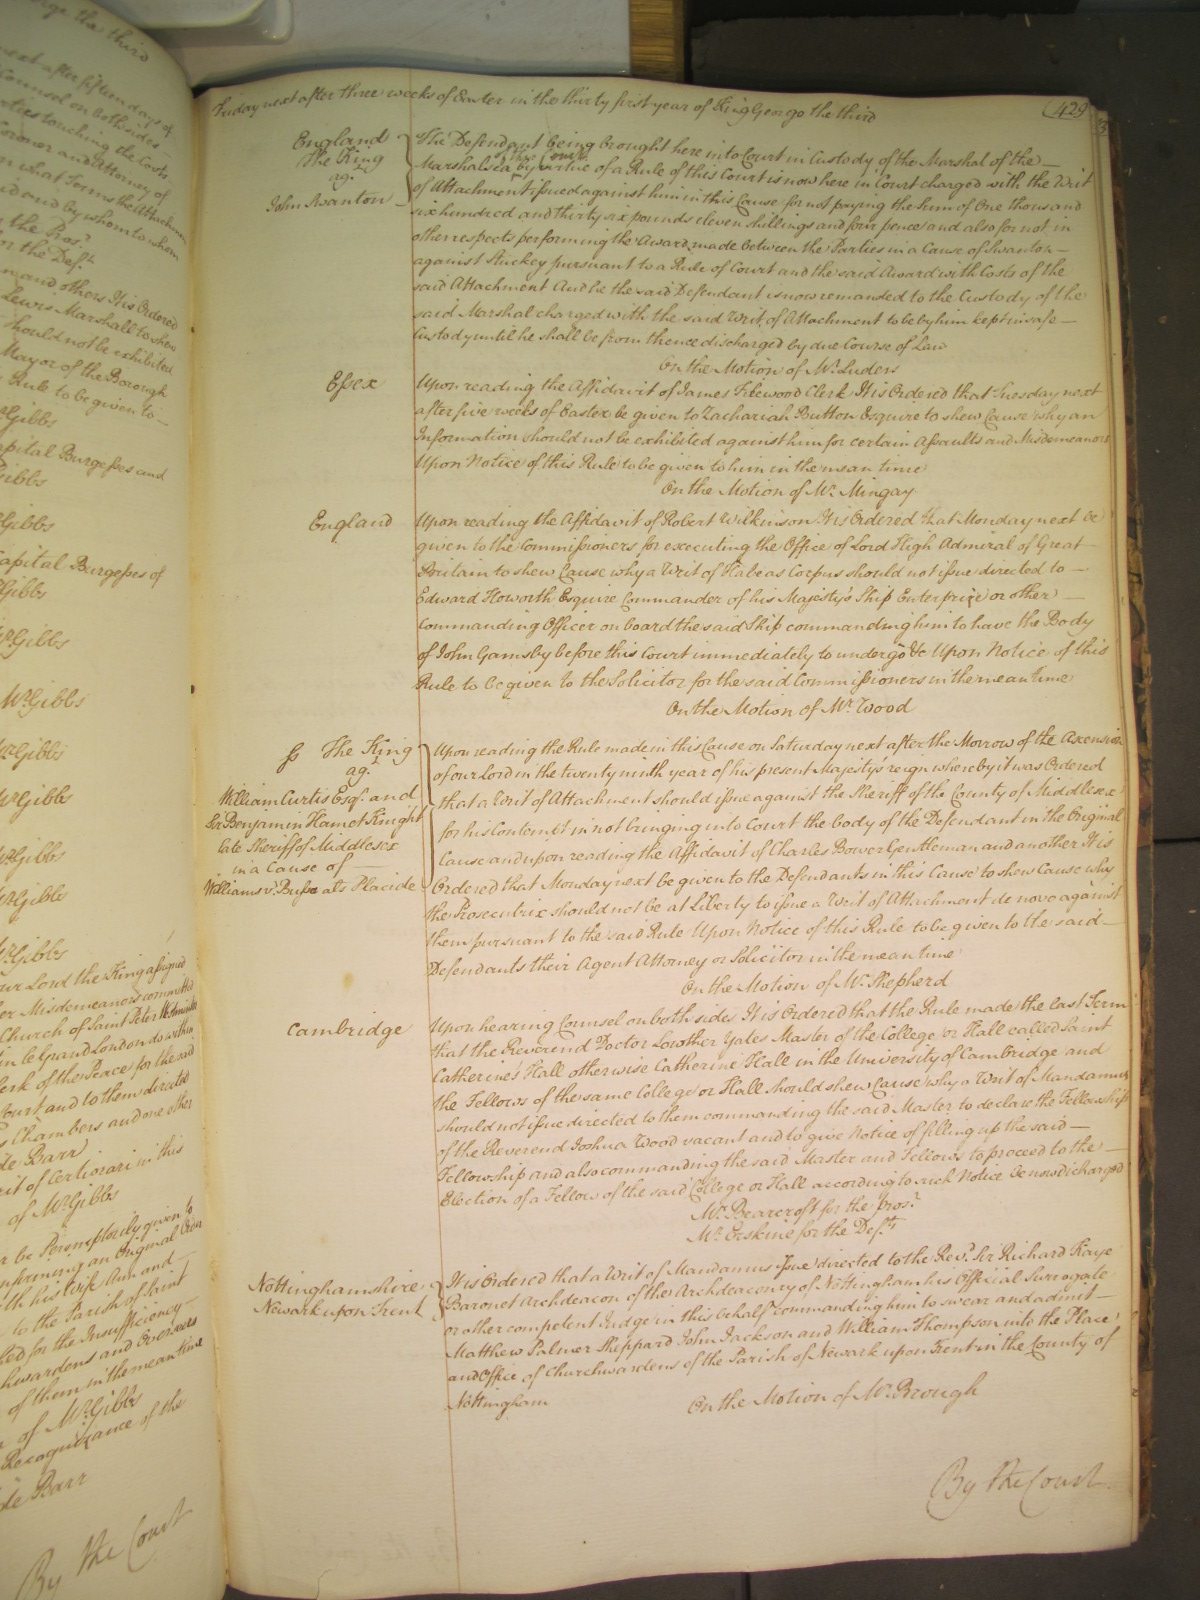 orge the third
next after fifteen days of
Counsel on both sides
rties touching the Costs
Coroner and Attorney of
n what Terms the Attachm
and by whom to whom
r the Pros.r
or the Def.t
mand others It is Ordered
Lewis Marshall to shew
should not be exhibited
Mayor of the Borough
Rule to be given to
Gibbs
apital Burgesses and
Gibbs
Gibbs
Capital Burgesses of
Gibbs
Mr Gibbs
Mr Gibbs
Mr Gibbs
Mr Gibbs
Mr Gibbs
Mr Gibbs
Mr Gibbs
our Lord the King assigned
er Misdemeanors committed
Church of Saint Peter Westminster
in le Grand London do within
lerk of the Peace for the said
Court and to them directed
s Chambers and one other
de Barr
rit of Certiorari in this
of Mr Gibbs
r be Peremptorily given to
nfirming an Original Order
th his Wife Ann and
to the Parish of Saint
ted for the Insufficiency
hwardens and Overseers
of them in the mean time
n of Mr Gibbs
Recognizance of the
de Barr
By the Court
Friday next after three weeks of Easter in the thirty first year of King George the third
429
England
The King
ag.t
John Swanton
The Defendant being brought here into Court in Custody of the Marshal of the
Marshalsea of this Court by virtue of a Rule of this Court is now here in Court charged with the Writ
of Attachment issued against him in this Cause for not paying the Sum of One thousand
six hundred and thirty six pounds eleven shillings and four pence and also for not in
other respects performing the Award made between the Parties in a Cause of Swanton
against Stuckey pursuant to a Rule of Court and the said Award with Costs of the
said Attachment And he the said Defendant is now remanded to the Custody of the
said Marshal charged with the said Writ of Attachment to be by him kept in safe
Custody until he shall be from thence discharged by due Course of Law
On the Motion of Mr. Luders
Essex
Upon reading the Affidavit of James Filewood Clerk It is Ordered that Tuesday next
after five weeks of Easter be given to Zachariah Button Esquire to shew Cause why an
Information should not be exhibited against him for certain Assaults and Misdemeanors
Upon Notice of this Rule to be given to him in the mean time
On the Motion of Mr. Mingay
England
Upon reading the Affidavit of Robert Wilkinson It is Ordered that Monday next be
given to the Commissioners for executing the Office of Lord High Admiral of Great
Britain to shew Cause why a Writ of Habeas Corpus should not issue directed to
Edward Howorth Esquire Commander of his Majesty's Ship Enterprize or other
Commanding Officer on board the said Ship commanding him to have the Body
of John Gamsby before this Court immediately to undergo &c Upon Notice of this
Rule to be given to the Solicitor for the said Commissioners in the mean time
On the Motion of Mr. Wood
ss The King
ag.t
William Curtis Esq.r and
Sir Benjamin Hamet Knight
late Sheriff of Middlesex
in a Cause of
Williams v. Bussart Placide
Upon reading the Rule made in this Cause on Saturday next after the Morrow of the Ascension
of our Lord in the twenty ninth year of his present Majesty's reign whereby it was Ordered
that a Writ of Attachment should issue against the Sheriff of the County of Middlesex
for his Contempt in not bringing into Court the body of the Defendant in the Original
Cause and upon reading the Affidavit of Charles Bower Gentleman and another It is
Ordered that Monday next be given to the Defendants in this Cause to shew Cause why
the Prosecutrix should not be at Liberty to issue a Writ of Attachment de novo against
them pursuant to the said Rule Upon Notice of this Rule to be given to the said
Defendants their Agent Attorney or Solicitor in the mean time
On the Motion of Mr. Shepherd
Cambridge
Upon hearing Counsel on both sides It is Ordered that the Rule made the last Term
that the Reverend Doctor Lowther Yates Master of the College or Hall called Saint
Catherine's Hall otherwise Catherine Hall in the University of Cambridge and
the Fellows of the same College or Hall should shew Cause why a Writ of Mandamus
should not issue directed to them commanding the said Master to declare the Fellowship
of the Reverend Joshua Wood vacant and to give Notice of filling up the said
Fellowship and also commanding the said Master and Fellows to proceed to the
Election of a Fellow of the said College or Hall according to such Notice be now discharged
Mr. Bearcroft for the Pros.r
Mr. Erskine for the Def.ts
Nottinghamshire
Newark upon Trent
It is Ordered that a Writ of Mandamus issue directed to the Rev.d Sir Richard Kaye
Baronet Archdeacon of the Archdeaconry of Nottingham his Official Surrogate
or other competent Judge in this behalf commanding him to swear and admit
Matthew Palmer Sheppard John Jackson and William Thompson into the Place
and Office of Churchwardens of the Parish of Newark upon Trent in the County of
Nottingham
On the Motion of Mr. Brough
By the Court